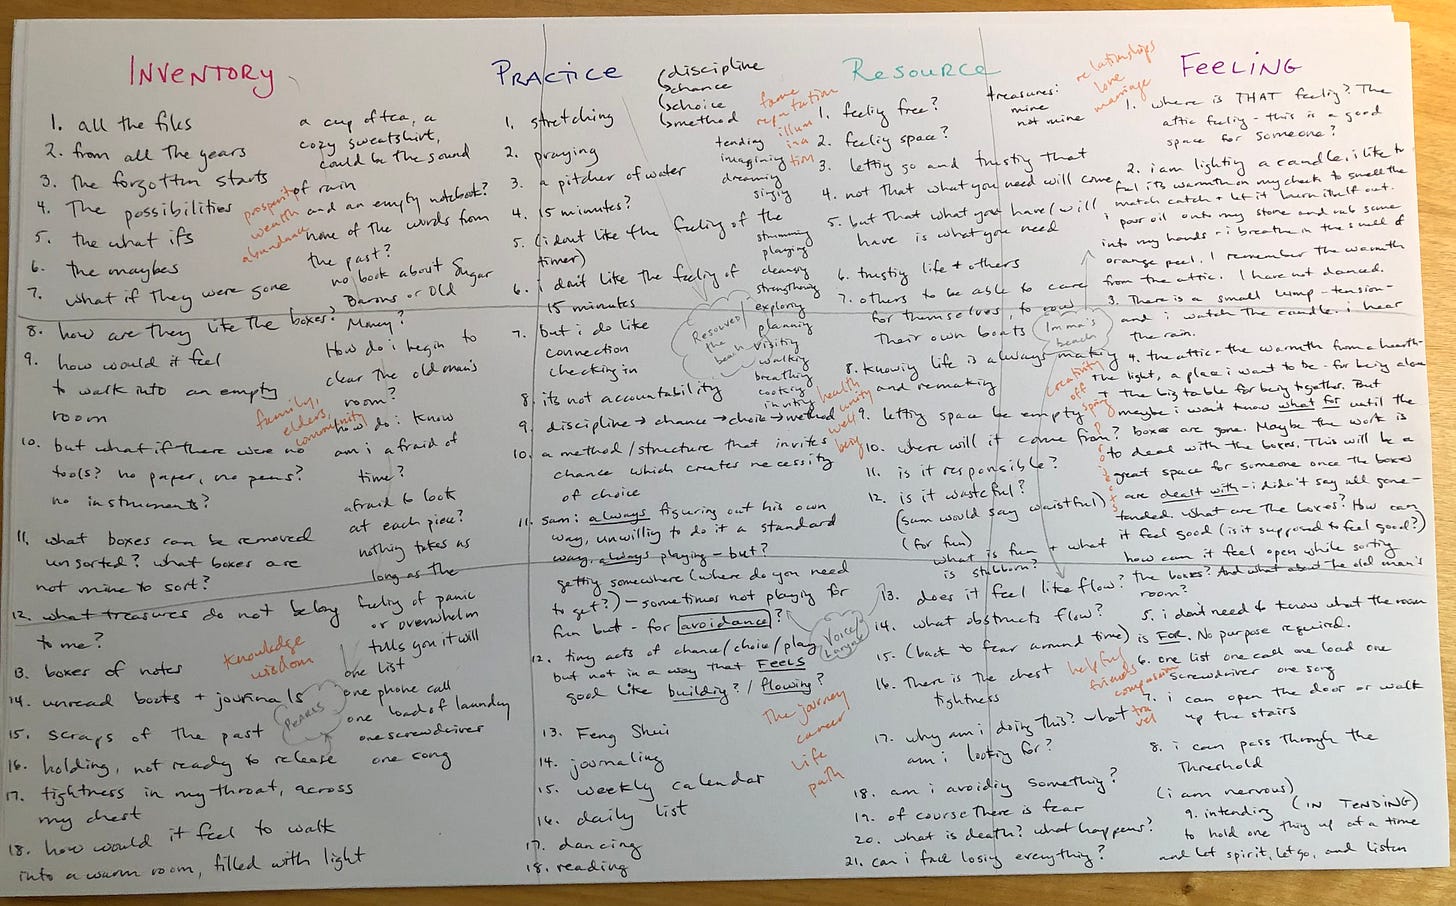 INVENTORY
1. all the files
2. from all the years
3. the forgotten starts
4. The possibilities
5. the what ifs
6. the maybes
7. what if they were gone
8. how are they like the boxes?
9. how would it feel
to walk into an empty
room
10. but what if there were no
tools? no paper, no pens?
no instruments?
11. what boxes can be removed
unsorted? what boxes are
not mine to sort?
12. what treasures do not belong
to me?
13. boxes of notes
14. unread books + journals
15. scraps of the past
16. holding, not ready to release
17. tightness in my throat, across
my chest
18. how would it feel to walk
into a warm room, filled with light
a cup of tea, a
cozy sweatshirt,
could be the sound
of rain
and an empty notebook?
none of the words from
the past?
no book about Sugar
Barons or Old
Money?
How do i begin to
clear the old man's
room?
how do i know
am i afraid of
time?
afraid to look
at each piece?
nothing takes as
long as the
feeling of panic
or overwhelm
tells you it will
one list
one phone call
one load of laundry
one screwdriver
one song
prosperity
wealth
abundance
family,
elders,
community
Knowledge
wisdom
PEARLS
PRACTICE
discipline
chance
choice
method
1. stretching
2. praying
3. a pitcher of water
4. 15 minutes?
5. (i dont like the feeling of the
timer)
6. i don't like the feeling of
15 minutes
7. but i do like
connection
checking in
8. its not accountability
9. discipline → chance → choice → method
10. a method/structure that invites
chance which creates necessity
of choice
11. sam: always figuring out his own
way, unwilling to do it a standard
way, always playing - but?
getting somewhere (where do you need
to get?) - sometimes not playing for
fun but - for avoidance?
12. tiny acts of chance/choice/play
but not in a way that FEELS
good like building? / flowing?
13. Feng Shui
14. journaling
15. weekly calendar
16. daily list
17. dancing
18. reading
tending
imagining
dreaming
singing
strumming
playing
cleansing
strengthening
exploring
planning
visiting
walking
breathing
cooking
inviting
fame
reputation
illum
ina
tion
Resolved/
the
beach
health
unity
well
being
Voice/
Larynx
The journey
career
life
path
RESOURCE
treasures:
mine
not mine
1. feeling free?
2. feeling space?
3. letting go and trusting that
4. not that what you need will come
5. but that what you have/will
have is what you need
6. trusting life + others
7. others to be able to care
for themselves, to row
their own boats
8. knowing life is always making
and remaking
9. letting space be empty
10. where will it come from?
11. is it responsible?
12. is it wasteful?
(sam would say waistful)
(for fun)
what is fun + what
is stubborn?
13. does it feel like flow?
14. what obstructs flow?
15. (back to fear around time)
16. There is the chest
tightness
17. why am i doing this? what
am i looking for?
18. am i avoiding something?
19. of course there is fear
20. what is death? what happens?
21. can i face losing everything?
Imma's
beach
creativity
off
spring
projects
helpful
friends
compassion
travel
FEELING
relationships
love
marriage
1. where is THAT feeling? The
attic feeling - this is a good
space for someone?
2. i am lighting a candle, i like to
feel its warmth on my cheek to smell the
match catch + let it burn itself out.
i pour oil onto my stone and rub some
into my hands - i breathe in the smell of
orange peel. I remember the warmth
from the attic. I have not danced.
3. There is a small lump - tension -
and i watch the candle. i hear
the rain.
4. the attic - the warmth from a hearth -
the light, a place i want to be - for being alone
+ the big table for being together. But
maybe i wont know what for until the
boxes are gone. Maybe the work is
to deal with the boxes. This will be a
great space for someone once the boxes
are dealt with - i didn't say all gone -
tended. what are the boxes? How can
it feel good (is it supposed to feel good?)
how can it feel open while sorting
the boxes? And what about the old man's
room?
5. i don't need to know what the room
is FOR. No purpose required.
6. one list one call one load one
screwdriver one song
7. i can open the door or walk
up the stairs
8. i can pass through the
Threshold
(i am nervous)
9. intending (IN TENDING)
to hold one thing up at a time
and let spirit, let go, and listen